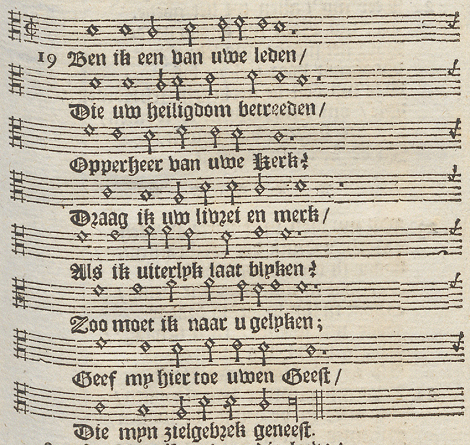 19 Ben ik een van uwe leden/
Die uw heiligdom betreeden/
Opperheer van uwe Kerk?
Draag ik uw livrei en merk/
Als ik uiterlyk laat blyken?
Zoo moet ik naar u gelyken;
Geef my hier toe uwen Geest/
Die myn zielgebrek geneest.